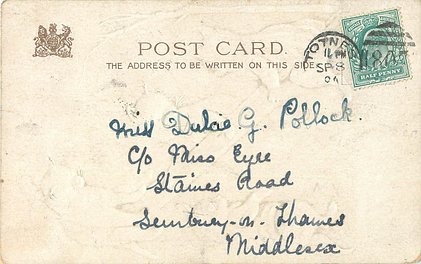 POST CARD.
THE ADDRESS TO BE WRITTEN ON THIS SIDE
TOTNES
SP 8
04
HALF PENNY
Miss Dulcie G. Pollock.
C/o Miss Eyre
Staines Road
Sunbury-on-Thames
Middlesex